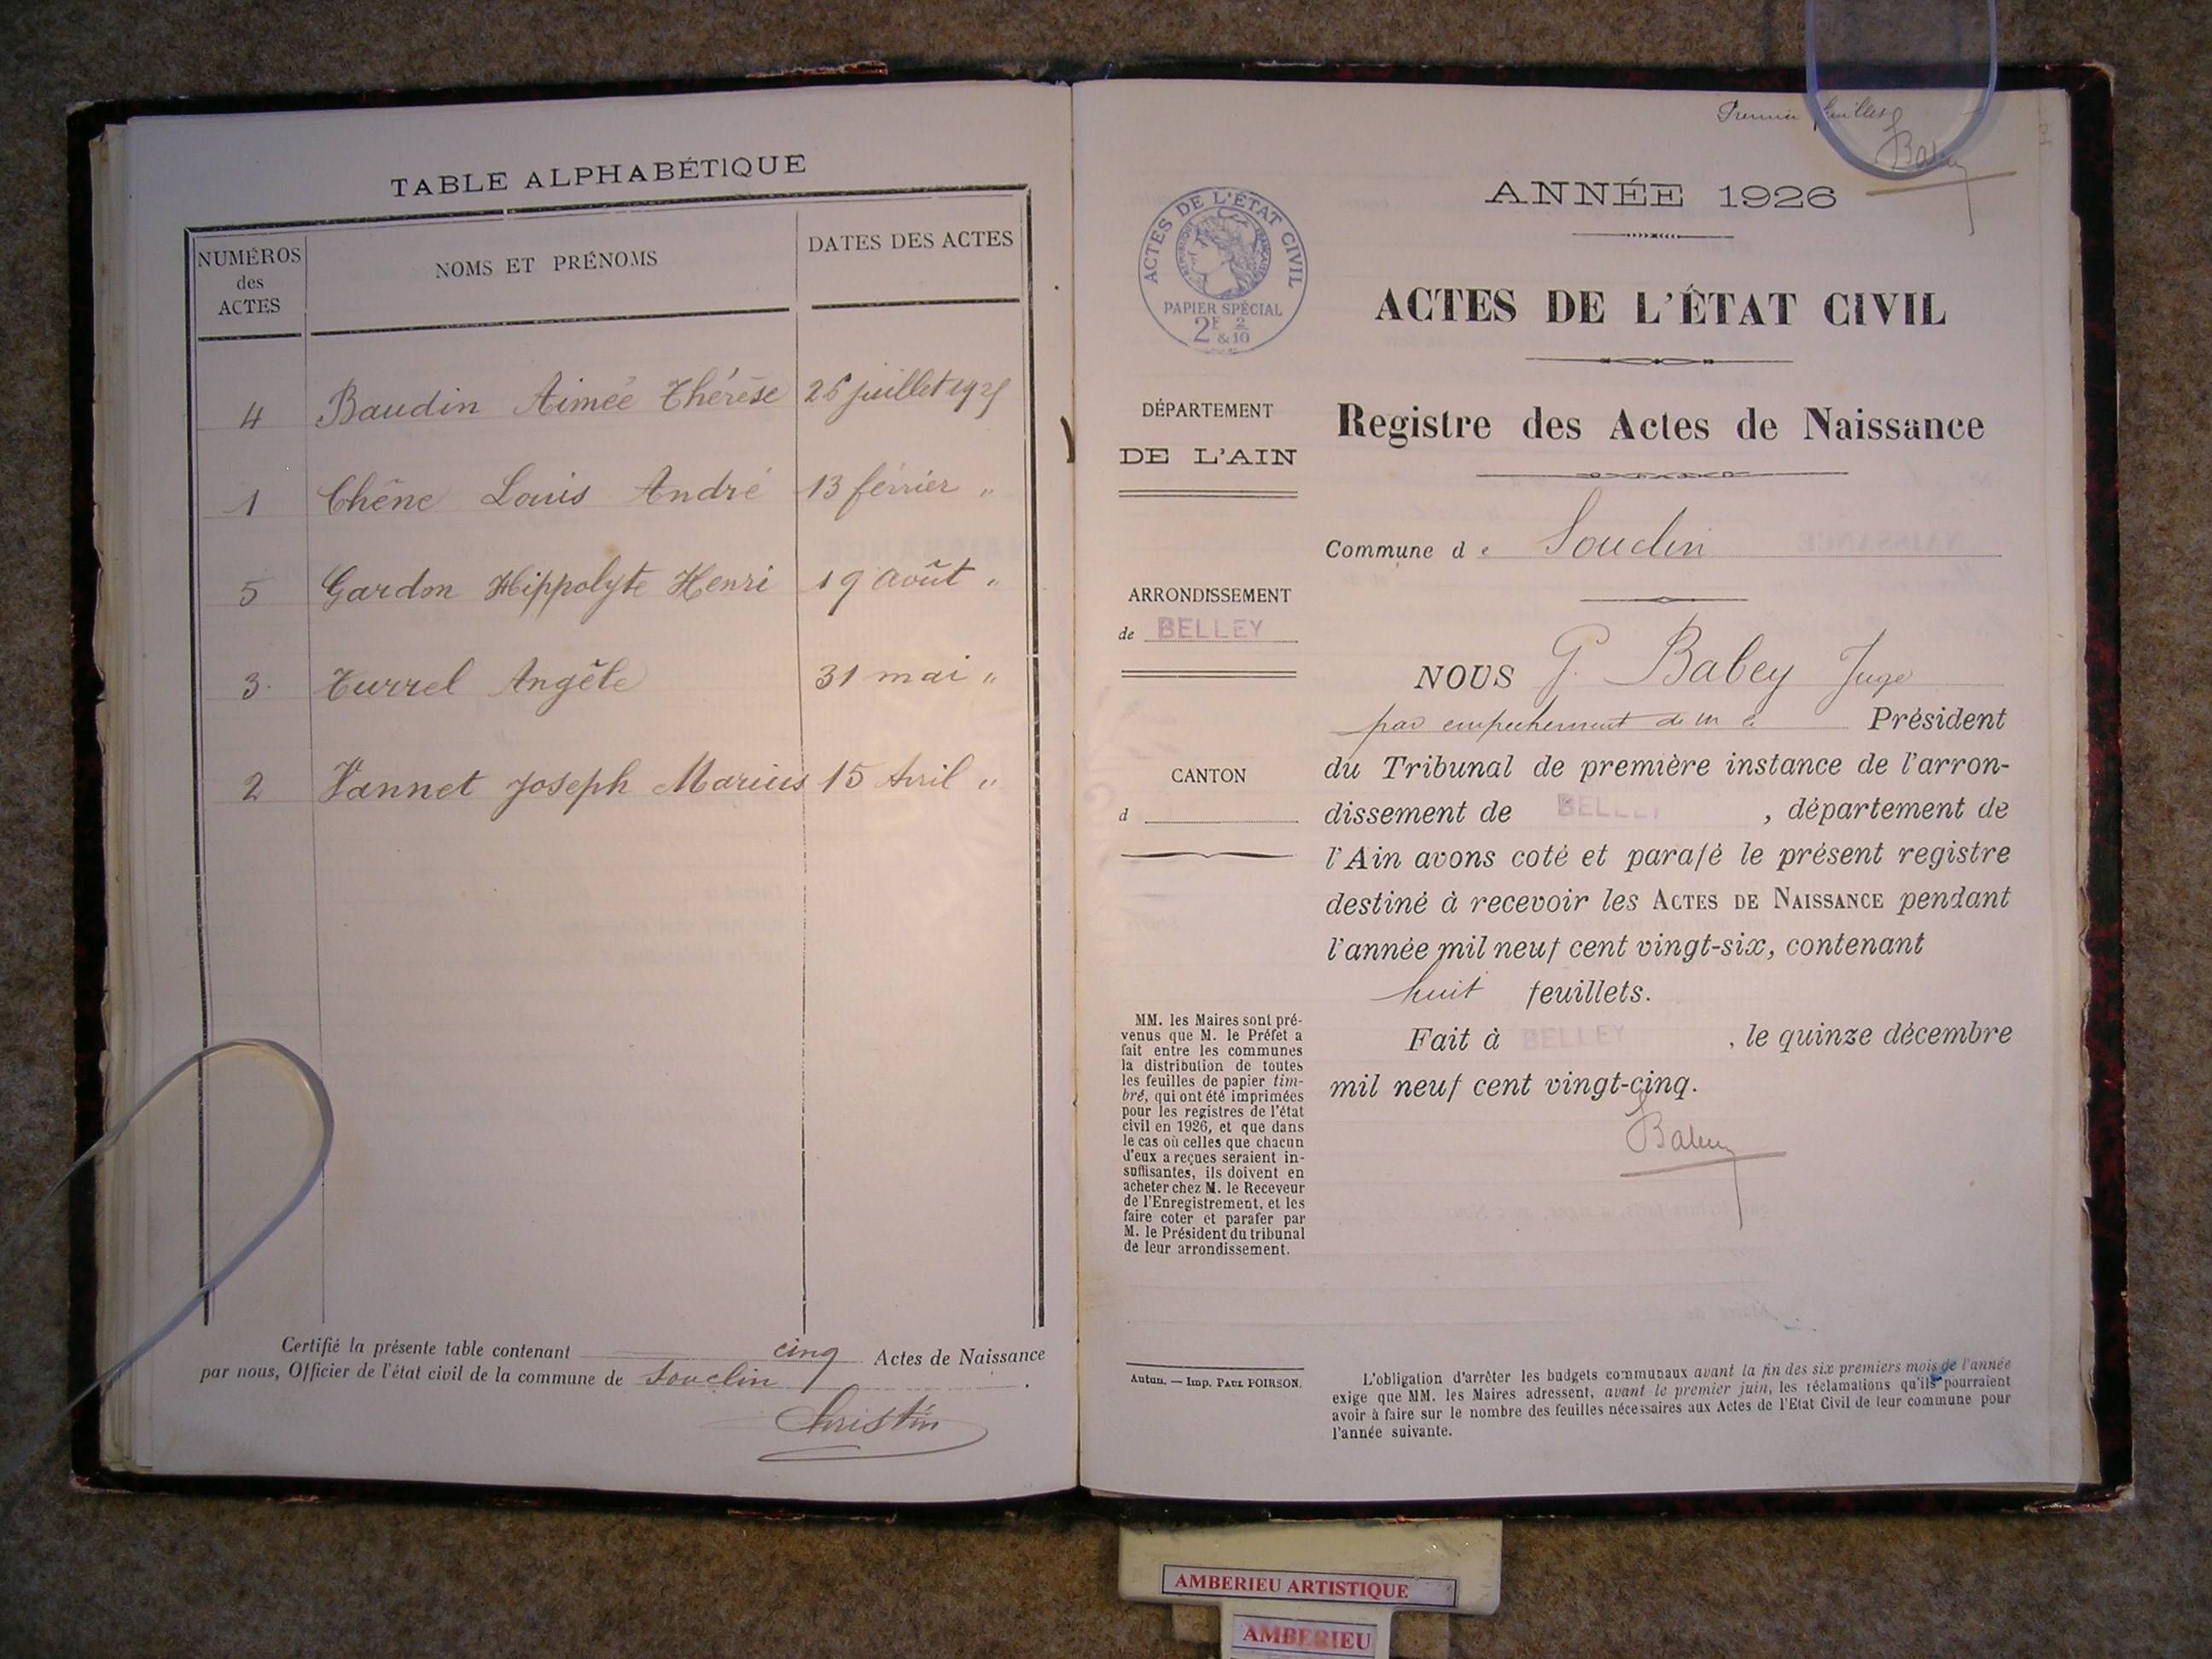 TABLE ALPHABÉTIQUE
NUMÉROS des ACTES NOMS ET PRÉNOMS DATES DES ACTES
4 Baudin Aimée Thérèse 26 juillet 1925
1 Chêne Louis André 13 février "
5 Gardon Hippolyte Henri 19 Août "
3. Turrel Angèle 31 mai "
2 Vannet Joseph Marius 15 Avril "
Certifié la présente table contenant cinq Actes de Naissance
par nous, Officier de l'état civil de la commune de Souclin.
Christin
Premier feuillet
Babey
ANNÉE 1926
ACTES DE L'ÉTAT CIVIL
RÉPUBLIQUE FRANÇAISE
PAPIER SPÉCIAL
2F & 2/10
ACTES DE L'ÉTAT CIVIL
DÉPARTEMENT
DE L'AIN
ARRONDISSEMENT
de BELLEY
CANTON
d
MM. les Maires sont pré-
venus que M. le Préfet a
fait entre les communes
la distribution de toutes
les feuilles de papier tim-
bré, qui ont été imprimées
pour les registres de l'état
civil en 1926, et que dans
le cas où celles que chacun
d'eux a reçues seraient in-
suffisantes, ils doivent en
acheter chez M. le Receveur
de l'Enregistrement, et les
faire coter et parafer par
M. le Président du tribunal
de leur arrondissement.
Autun. — Imp. PAUL POIRSON.
Registre des Actes de Naissance
Commune de Souclin
NOUS G. Babey Juge
par empechement de M le Président
du Tribunal de première instance de l'arron-
dissement de BELLEY, département de
l'Ain avons coté et parafé le présent registre
destiné à recevoir les ACTES DE NAISSANCE pendant
l'année mil neuf cent vingt-six, contenant
huit feuillets.
Fait à BELLEY, le quinze décembre
mil neuf cent vingt-cinq.
Babey
L'obligation d'arrêter les budgets communaux avant la fin des six premiers mois de l'année
exige que MM. les Maires adressent, avant le premier juin, les réclamations qu'ils pourraient
avoir à faire sur le nombre des feuilles nécessaires aux Actes de l'Etat Civil de leur commune pour
l'année suivante.
AMBERIEU ARTISTIQUE
AMBERIEU